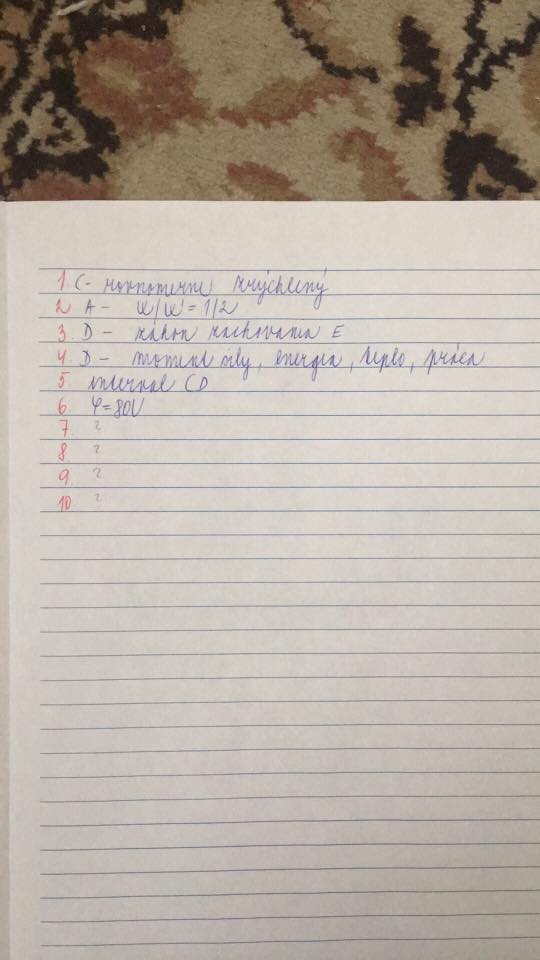 1. C- rovnomerne zrýchlený
2. A - W/W' = 1/2
3. D - zákon zachovania E
4. D - moment sily, energia, teplo, práca
5. interval CD
6. φ=80V
7. ?
8. ?
9. ?
10. ?